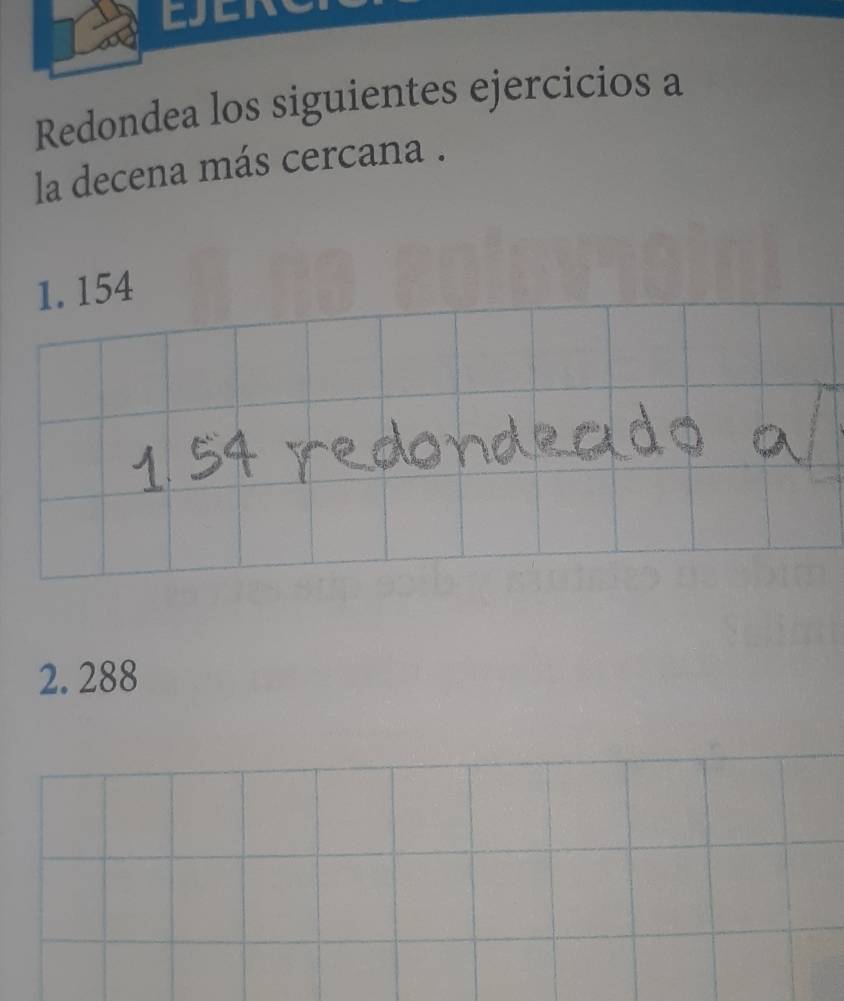 Redondea los siguientes ejercicios a
la decena más cercana .
1. 154
154 redondeado a
2. 288